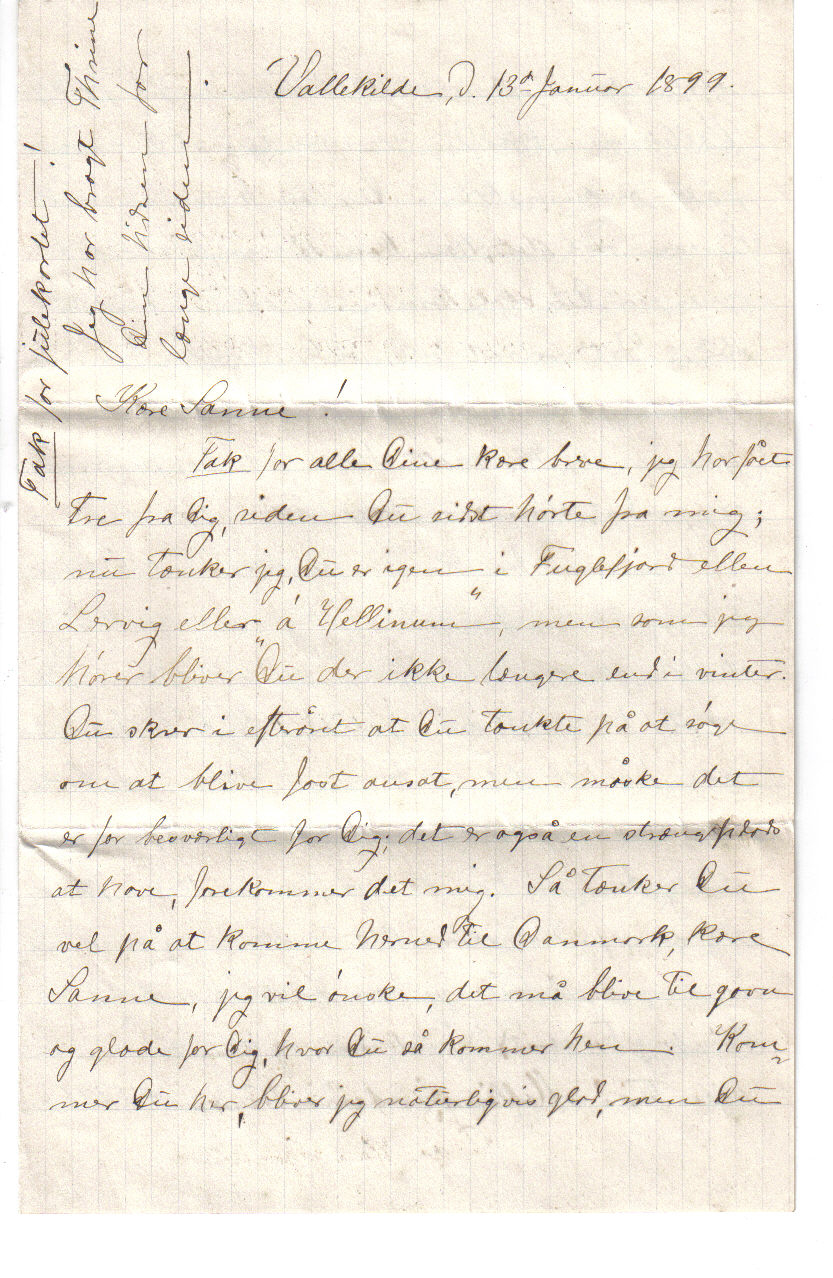 Vallekilde, d. 13de Januar 1899.
Tak for julekortet!
Jeg har bragt Thrine
Din hilsen for
længe siden.
Kære Sanne!
Tak for alle Dine kære breve, jeg har fået
tre fra Dig, siden Du sidst hørte fra mig;
nu tænker jeg, Du er igen i Fuglefjord eller
Lervig eller "á Hellinum", men som jeg
hører bliver Du der ikke længere end i vinter.
Du skrev i efteråret at Du tænkte på at søge
om at blive fast ansat, men måske det
er for besværligt for Dig; det er også en streng plads
at have, forekommer det mig. Så tænker Du
vel på at komme herned til Danmark, kære
Sanne, jeg vil ønske, det må blive til gavn
og glæde for Dig, hvor Du så kommer hen. Kom-
mer Du her, bliver jeg naturligvis glad, men Du